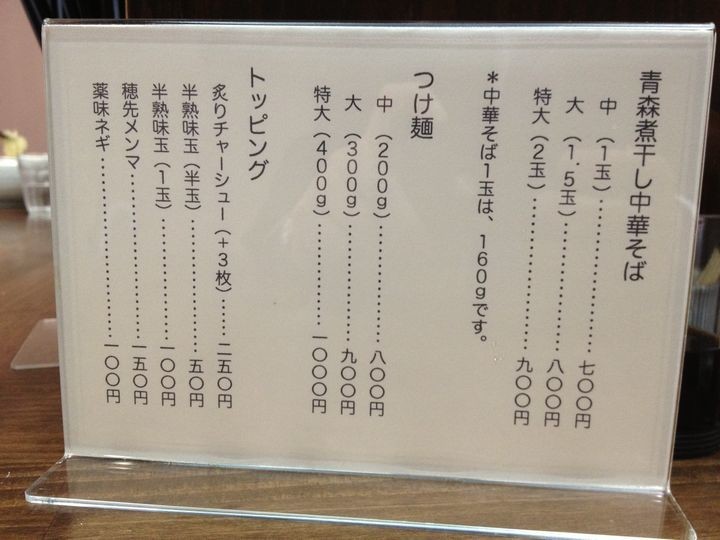 青森煮干し中華そば
中（1玉）……………………七〇〇円
大（1.5玉）…………………八〇〇円
特大（2玉）…………………九〇〇円
＊中華そば1玉は、160gです。
つけ麺
中（200g）…………………八〇〇円
大（300g）…………………九〇〇円
特大（400g）………………一〇〇〇円
トッピング
炙りチャーシュー（＋3枚）……二五〇円
半熟味玉（半玉）……………五〇円
半熟味玉（1玉）……………一〇〇円
穂先メンマ……………………一五〇円
薬味ネギ………………………一〇〇円